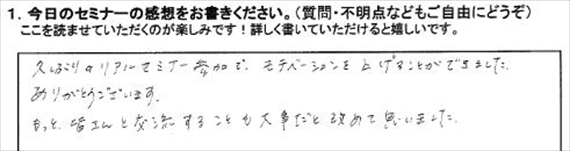 1. 今日のセミナーの感想をお書きください。（質問・不明点などもご自由にどうぞ）
ここを読ませていただくのが楽しみです！詳しく書いていただけると嬉しいです。
久しぶりのリアルセミナー参加で、モチベーションを上げることができました。
ありがとうございます。
もっと、皆さんと交流することも大事だと改めて思いました。